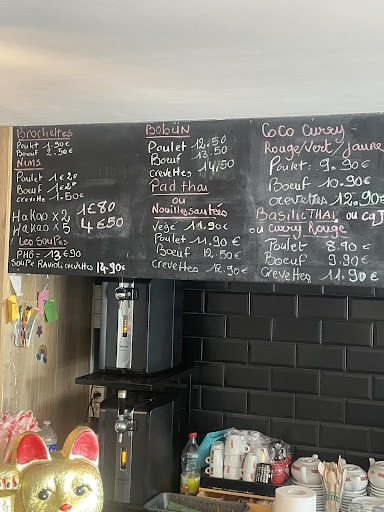 Brochettes
Poulet 1.90€
Boeuf 2.50€
Nems
Poulet 1€20
Boeuf 1€20
crevette 1.50€
Hakao x 2 1€80
Hakao x 5 4€50
Les Soupes
PHÔ = 13€90
Soupe Ravioli crevettes 14.90€
BOBÜN
Poulet 12.50
Boeuf 13.50
crevettes 14,50
Pad thai
ou
Nouilles sautées
Végé 11.90€
Poulet 11.90€
Boeuf 12.50€
crevettes 12.90€
Coco Curry
Rouge/Vert/Jaune
Poulet: 9.90€
Boeuf 10.90€
crevettes 12.90€
Basilic THAI ou
ou curry Rouge
Poulet 8.90€
Boeuf 9.90€
crevettes 11.90€